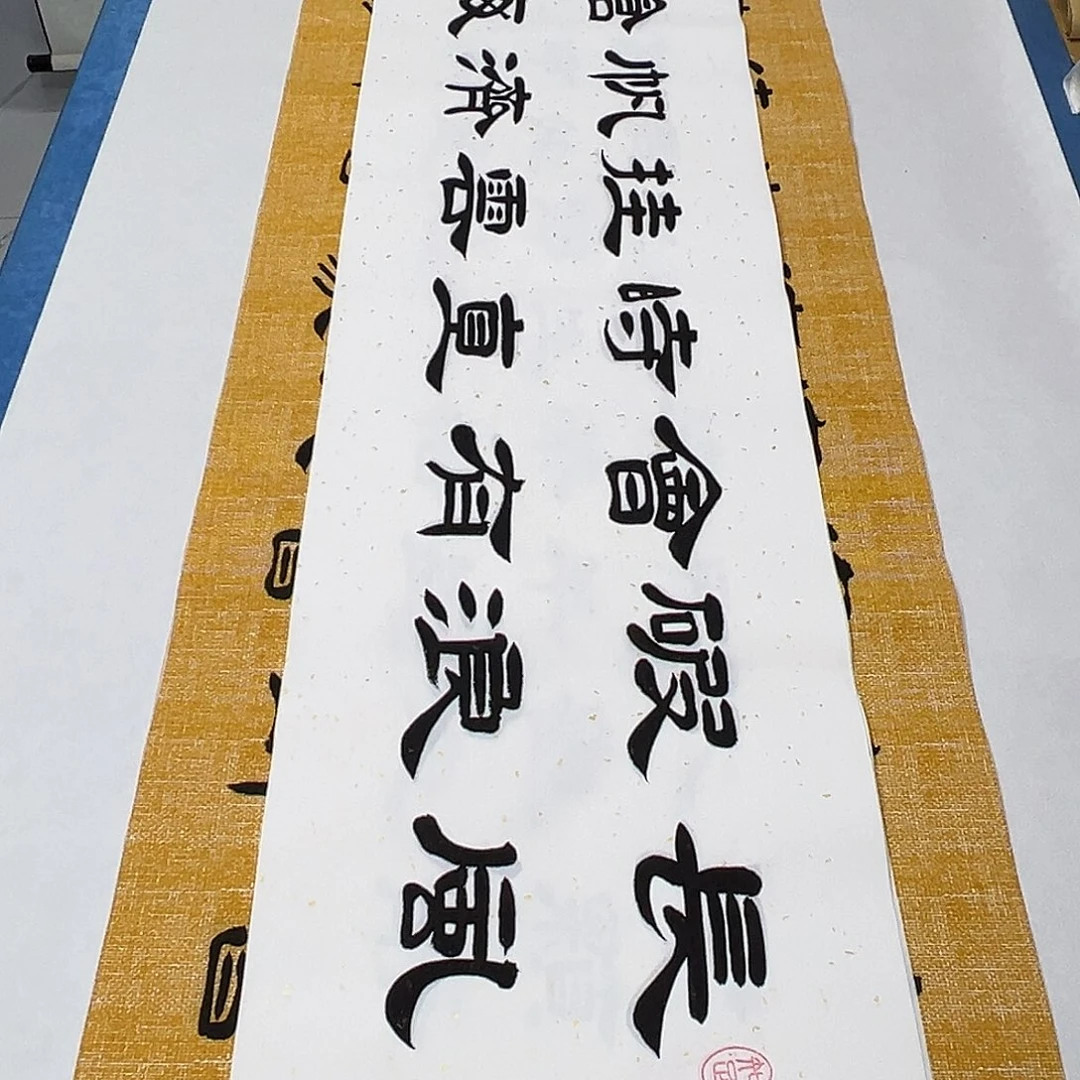 長風
破浪
會有
時直
挂雲
帆濟